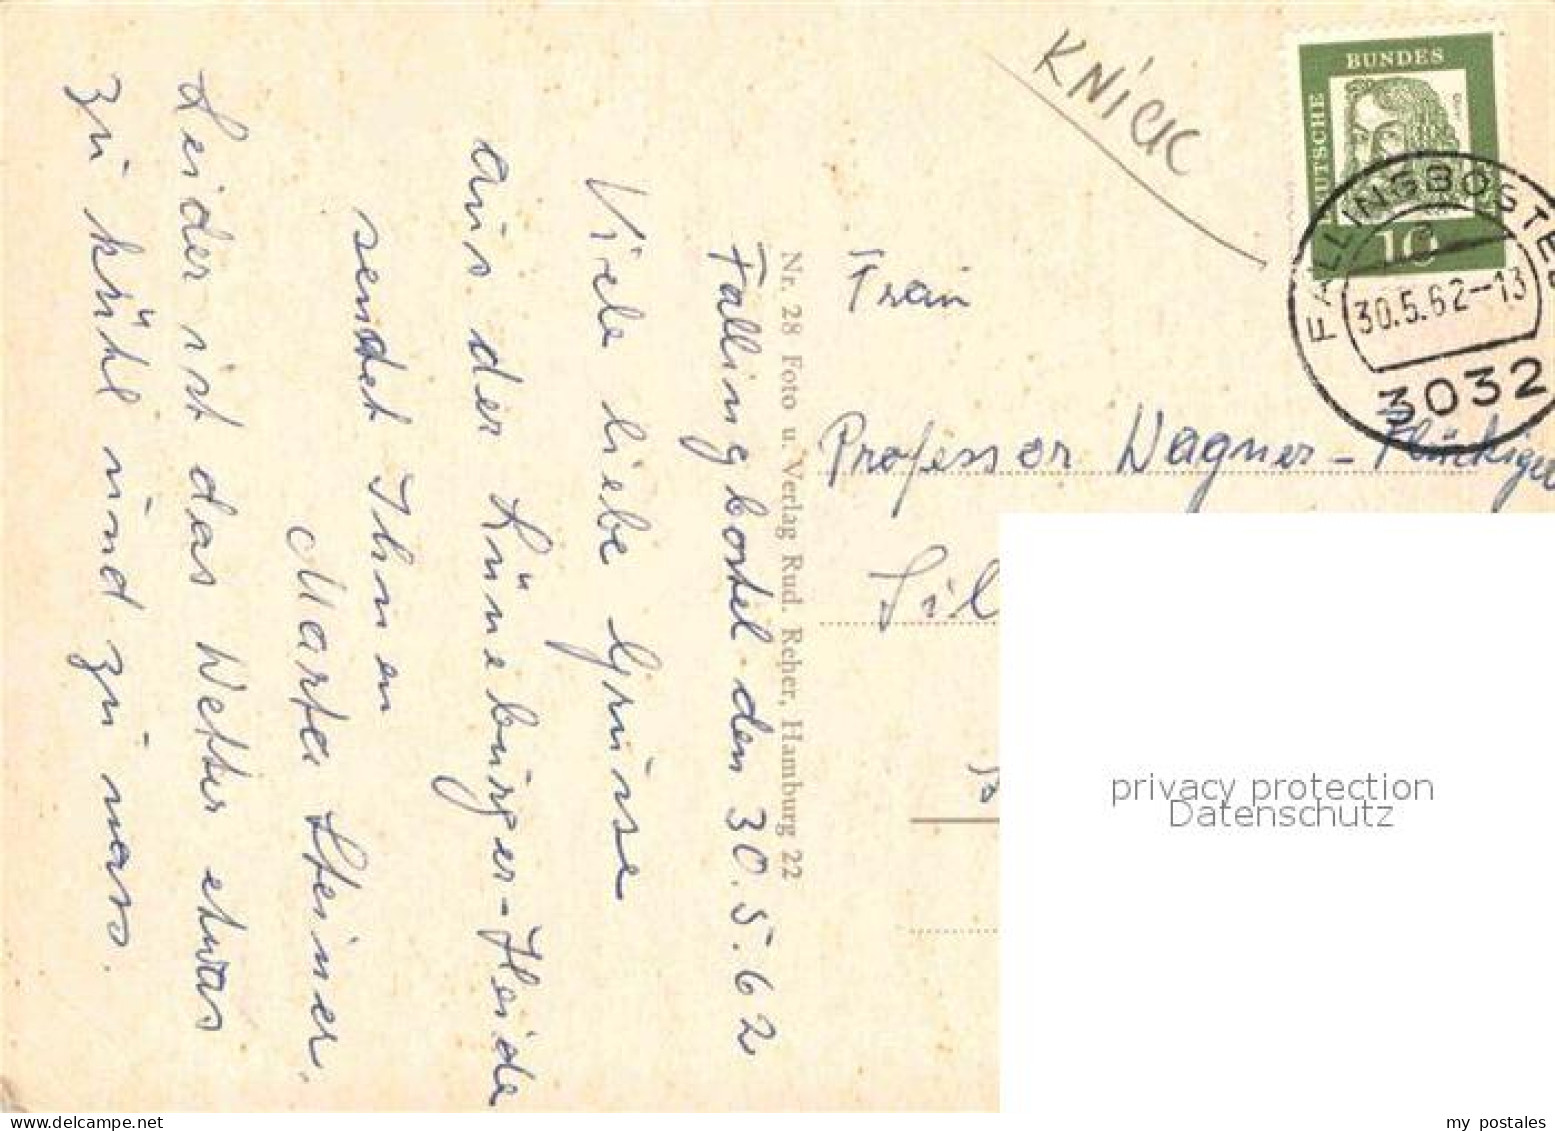 Fallingbostel den 30.5.62
Viele liebe Grüsse
aus der Lüneburger-Heide
sendet Ihnen
Marta Steiner.
Leider ist das Wetter etwas
zu kühl und zu nass.
Nr. 28 Foto u. Verlag Rud. Reher, Hamburg 22
KNICK
DEUTSCHE BUNDES
10
FALLINGBOSTEL
30.5.62-13
3032
Frau
Professor Wagner-
Sil
privacy protection
Datenschutz
my postales